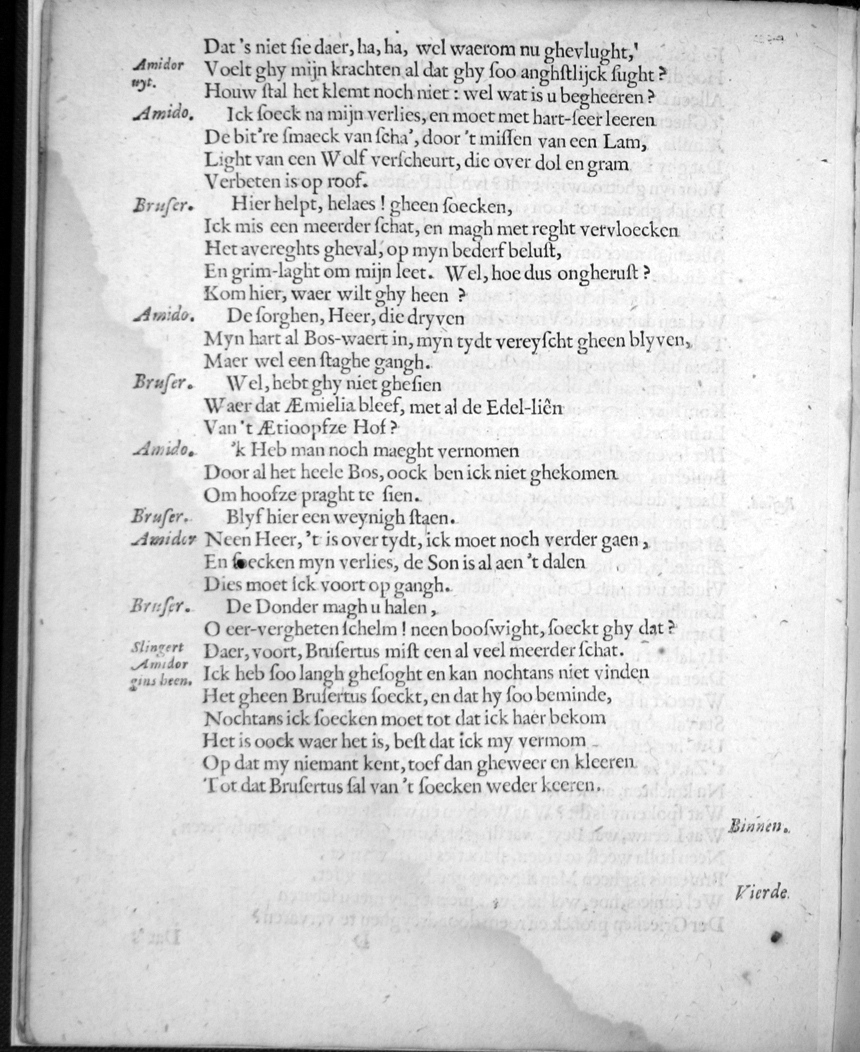 Dat 's niet ſie daer, ha, ha, wel waerom nu ghevlught,'
Amidor uyt. Voelt ghy mijn krachten al dat ghy ſoo anghſtlijck ſught ?
Houw ſtal het klemt noch niet : wel wat is u begheeren ?
Amido. Ick ſoeck na mijn verlies, en moet met hart-ſeer leeren
De bit're ſmaeck van ſcha', door 't miſſen van een Lam,
Light van een Wolf verſcheurt, die over dol en gram
Verbeten is op roof.
Bruſer. Hier helpt, helaes ! gheen ſoecken,
Ick mis een meerder ſchat, en magh met reght vervloecken
Het avereghts gheval, op myn bederf beluſt,
En grim-laght om mijn leet. Wel, hoe dus ongheruſt ?
Kom hier, waer wilt ghy heen ?
Amido. De ſorghen, Heer, die dryven
Myn hart al Bos-waert in, myn tydt vereyſcht gheen blyven,
Maer wel een ſtaghe gangh.
Bruſer. Wel, hebt ghy niet gheſien
Waer dat Æmielia bleef, met al de Edel-liên
Van 't Ætioopſze Hof ?
Amido. 'k Heb man noch maeght vernomen
Door al het heele Bos, oock ben ick niet ghekomen
Om hoofze praght te ſien.
Bruſer. Blyf hier een weynigh ſtaen.
Amidor Neen Heer, 't is over tydt, ick moet noch verder gaen,
En ſoecken myn verlies, de Son is al aen 't dalen
Dies moet ick voort op gangh.
Bruſer. De Donder magh u halen,
O eer-vergheten ſchelm ! neen booſwight, ſoeckt ghy dat ?
Slingert Amidor gins heen. Daer, voort, Bruſertus miſt een al veel meerder ſchat.
Ick heb ſoo langh gheſoght en kan nochtans niet vinden
Het gheen Bruſertus ſoeckt, en dat hy ſoo beminde,
Nochtans ick ſoecken moet tot dat ick haer bekom
Het is oock waer het is, beſt dat ick my vermom
Op dat my niemant kent, toef dan gheweer en kleeren
Tot dat Bruſertus ſal van 't ſoecken weder keeren.
Binnen.
Vierde.